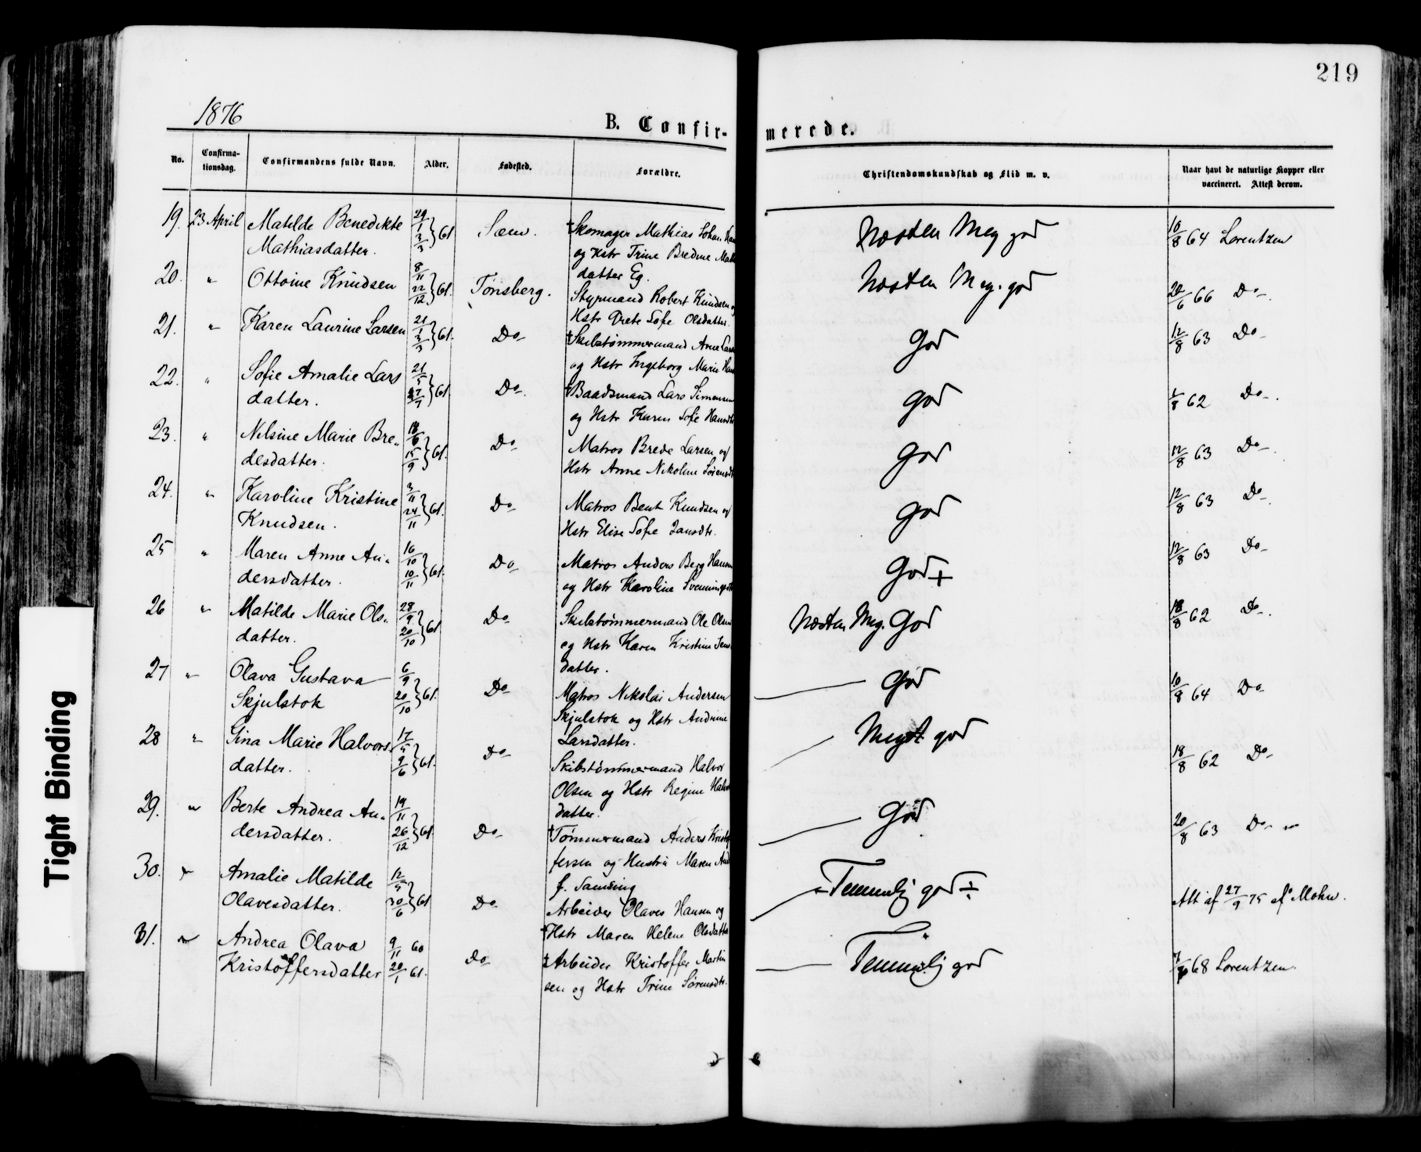 219
1876
B. Confir-
merede.
No.
Confirma-
tionsdag.
Confirmandens fulde Navn.
Alder.
Fødested.
Forældre.
Christendomskundskab og Flid m. v.
Naar havt de naturlige Kopper eller
vaccineret. Attest derom.
19. 23 April Matilde Benedikte
Mathiasdatter.
61 Sæm.
Skomager Mathias Johan
og Hstr Trine Bredine
datter Eg.
Næsten Meg god
10/8 64 Lorentzen
20. " Ottoine Knudsen
8/11 22/12 61. Tønsberg.
Styrmand Robert Knudsen
Hstr Grete Sofe Olsdatter.
Næsten Meg. god
20/6 66 Do
21. " Karen Laurine Larsen
61. Do
Skibstømmermand Arne
og Hstr Ingeborg Marie
God
12/8 63 Do
22. " Sofie Amalie Lars
datter.
61. Do.
Baadsmand Lars Simensen
og Hstr Karen Sofe
God
62 Do
23. " Nilsine Marie Bre-
desdatter.
18/8 15/9 61. Do
Matros Brede Larsen og
Hstr Anne Nikoline
God
12/8 63 Do
24. " Karoline Kristine
Knudsen.
3/11 24/11 61. Do
Matros Bent Knudsen og
Hstr Elise Sofie
God
12/8 63 Do
25 " Maren Anne An-
dersdatter.
16/10 10/11 61. Do
Matros Anders Berg
og Hstr Karoline
God +
12/8 63 Do
26 " Matilde Marie Ols-
datter.
28/9 20/10 61. Do
Skibstømmermand Ole
og Hstr Karen Kristine
datter.
Næsten Meg. God
18/8 62 Do
27 " Olava Gustava
Skjulstok
6/9 20/10 61. Do
Matros Nikolai Andersen
Skjulstok og Hstr Andrine
Larsdatter.
God
10/8 64 Do
28 " Gina Marie Halvors
datter.
61. Do
Skibstømmermand Halvor
Olsen og Hstr Regine
datter.
Meget god
18/8 62 Do
29. " Berte Andrea An-
dersdatter.
19/11 26/12 61. Do
Tømmermand Anders
fersen og Hustru Maren
God
20/8 63 Do
30. " Amalie Matilde
Olavesdatter.
61 Do
Arbeider Olaves Hansen og
Hstr Maren Helene
Temmelig god
Att af 27/9 75 af Mohn.
31. " Andrea Olava
Kristoffersdatter
9/11 60
61. Do
Arbeider Kristoffer Martin
sen og Hstr Trine
Temmelig god
68 Lorentzen
Tight Binding